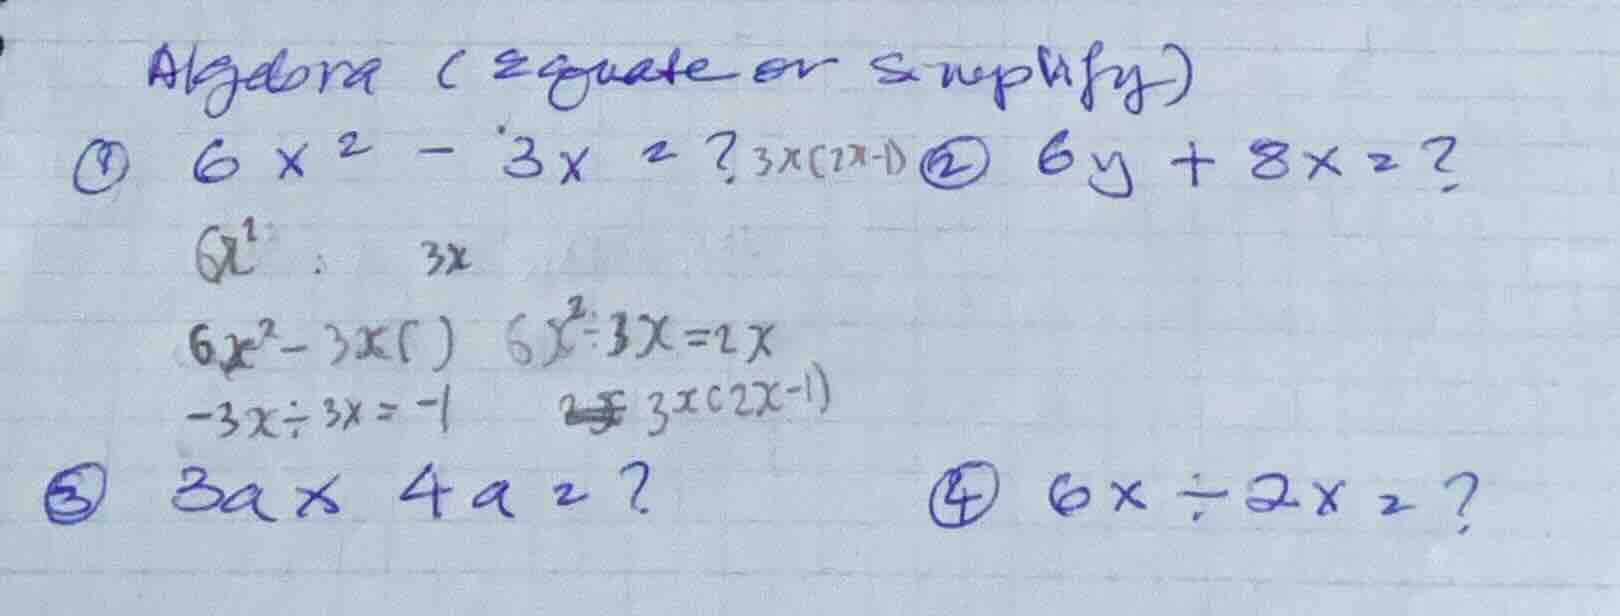 Algebra (Equate or Simplify)
① 6x² - 3x = ? 3x(2x-1) ② 6y + 8x = ?
6x² 3x
6x² - 3x( ) 6x² ÷ 3x = 2x
-3x ÷ 3x = -1 3x(2x-1)
③ 3a x 4a = ? ④ 6x ÷ 2x = ?